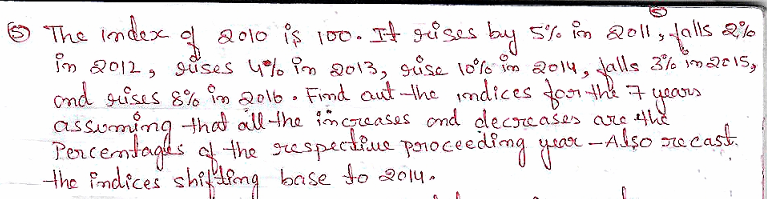 ⑤ The index of 2010 is 100. It rises by 5% in 2011, falls 2%
in 2012, rises 4% in 2013, rise 10% in 2014, falls 3% in 2015,
and rises 8% in 2016. Find out the indices for the 7 years
assuming that all the increases and decreases are the
Percentages of the respective proceeding year - Also recast
the indices shifting base to 2014.